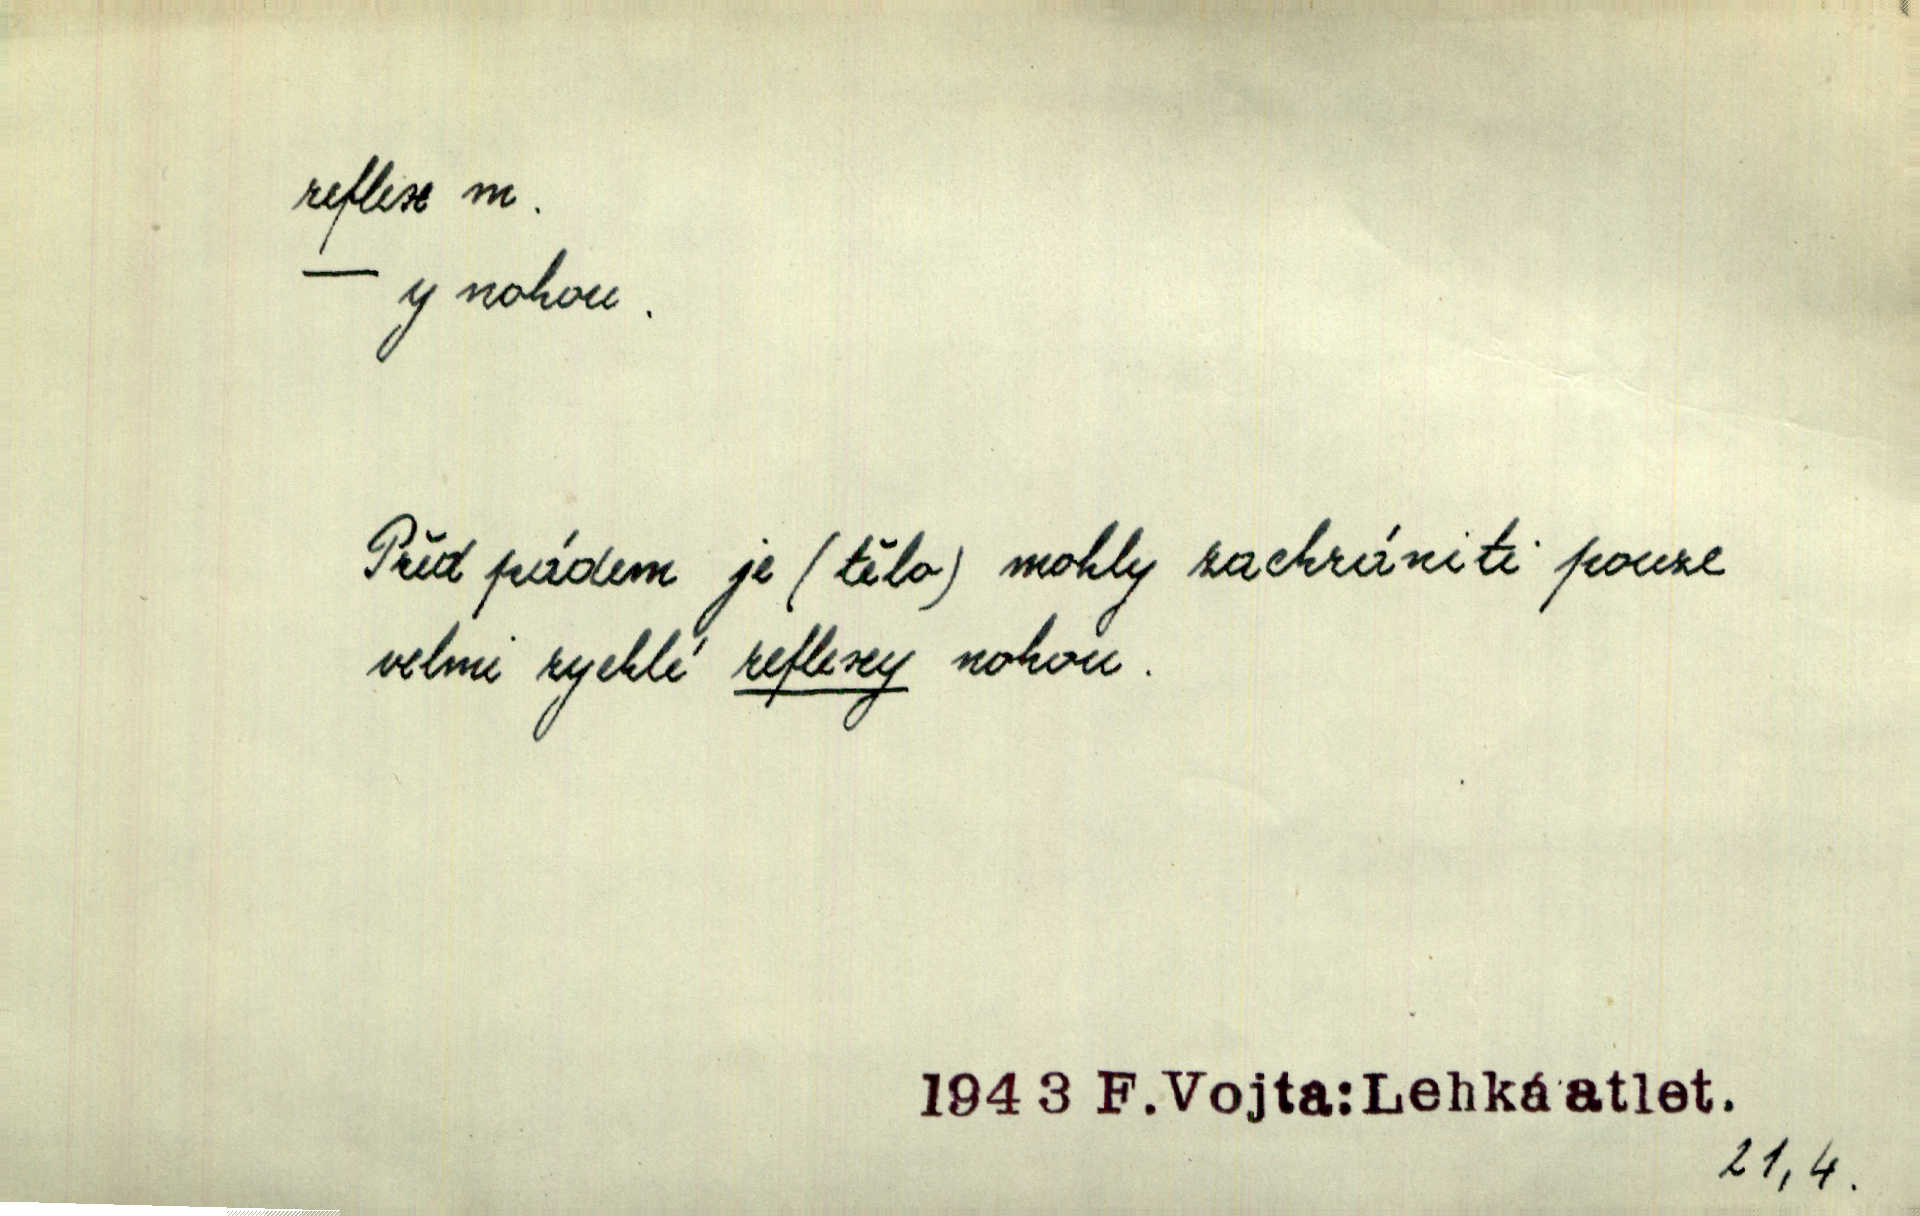 reflex m.
— y nohou.
Před pádem je (tělo) mohly zachrániti pouze
velmi rychlé reflexy nohou.
1943 F.Vojta:Lehká atlet.
21,4.